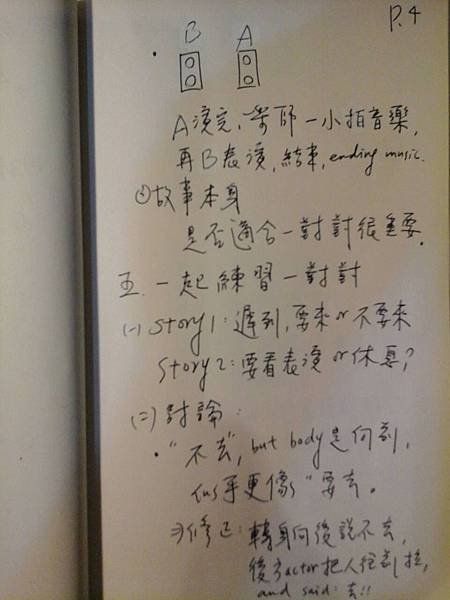 P.4
B A
A演完,樂師一小拍音樂,
再B表演,結束,ending music.
④故事本身
是否適合一對對很重要.
五.一起練習一對對
(一)story1:遲到,要來or不要來
story2:要看表演or休息?
(二)討論:
·"不去",but body是向前,
似乎更像"要去。
修正:轉身向後說不去,
後方actor把人往前拉,
and said:去!!